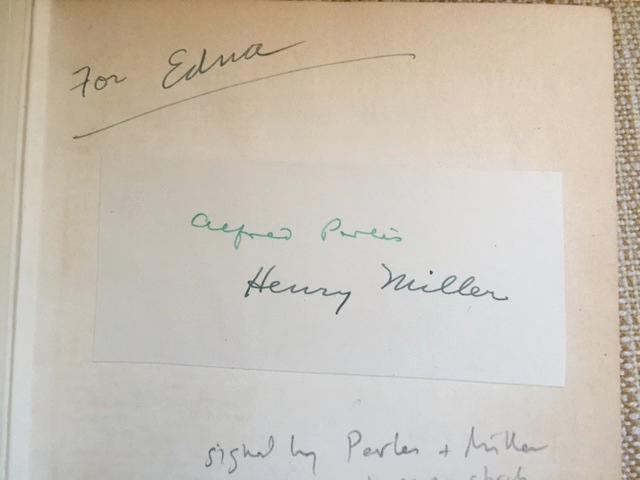 For Edna
Alfred Perlès
Henry Miller
signed by Perles + Miller